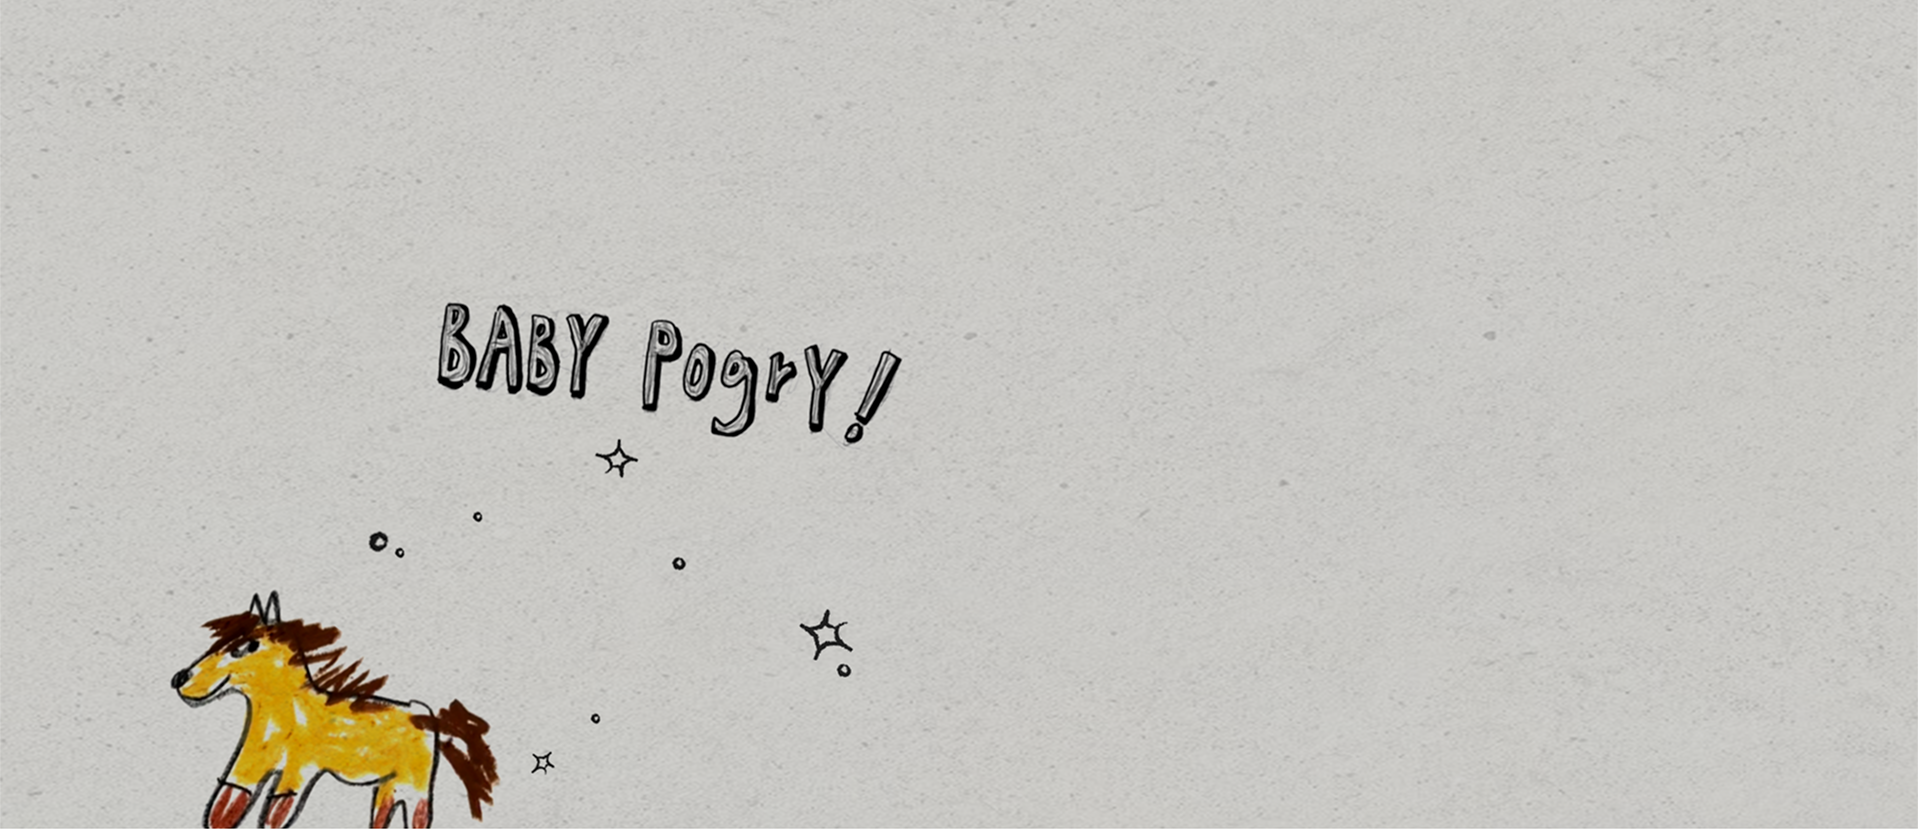 BABY PogrY!